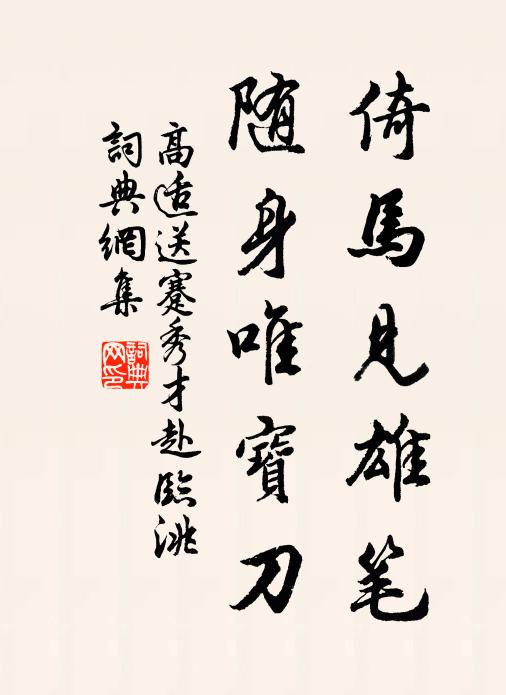 倚馬見雄笔
随身唯寶刀
高适送蹇秀才赴臨洮
詞典網集
詞典
网印